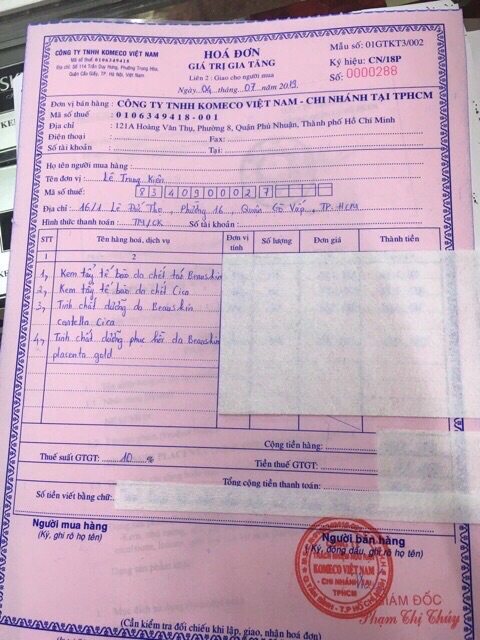 CÔNG TY TNHH KOMECO VIỆT NAM
Mã số thuế: 0106349418
Quận Cầu Giấy, TP. Hà Nội, Việt Nam
HOÁ ĐƠN
GIÁ TRỊ GIA TĂNG
Liên 2 : Giao cho người mua
Ngày 04 tháng 07 năm 2019.
Mẫu số: 01GTKT3/002
Ký hiệu: CN/18P
Số: 0000288
Đơn vị bán hàng : CÔNG TY TNHH KOMECO VIỆT NAM - CHI NHÁNH TẠI TPHCM
Mã số thuế : 0106349418-001
Địa chỉ : 121A Hoàng Văn Thụ, Phường 8, Quận Phú Nhuận, Thành phố Hồ Chí Minh
Điện thoại : Fax:
Số tài khoản : Tại:
Họ tên người mua hàng :
Tên đơn vị : Lê Trung Kiên
Mã số thuế: 8340900027
Địa chỉ : 16/1 Lê Đức Thọ , Phường 16 , Quận Gò Vấp , TP.HCM
Hình thức thanh toán: TM/CK Số tài khoản:
STT Tên hàng hoá, dịch vụ Đơn vị tính Số lượng Đơn giá Thành tiền
1 2
1, Kem tẩy tế bào da chết toà Beauskin
2, Kem tẩy tế bào da chết Cica
3, Tinh chất dưỡng da Beauskin
centella Cica
4, Tinh chất dưỡng phục hồi da Beauskin
placenta gold
Cộng tiền hàng:
Thuế suất GTGT: 10 % Tiền thuế GTGT:
Tổng cộng tiền thanh toán:
Số tiền viết bằng chữ:
Người mua hàng
(Ký, ghi rõ họ tên)
Người bán hàng
(Ký, đóng dấu, ghi rõ họ tên)
KOMECO VIỆT NAM
- CHI NHÁNH TẠI
TPHCM
GIÁM ĐỐC
Phạm Thị Thúy
(Cần kiểm tra đối chiếu khi lập, giao, nhận hoá đơn)